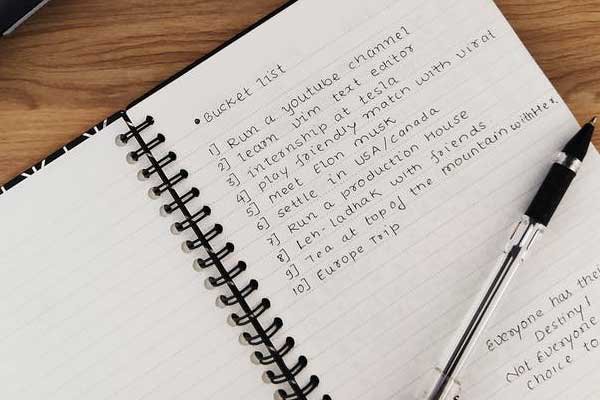 • Bucket list
1] Run a youtube channel
2] learn vim text editor
3] internship at tesla
4] play friendly match with virat
5] Meet Elon musk
6] settle in USA/Canada
7] Run a production House
8] Leh-Ladhak with friends
9] Tea at top of the mountain with Her.
10] Europe Trip
Everyone has their
Destiny!
Not Everyone
choice to